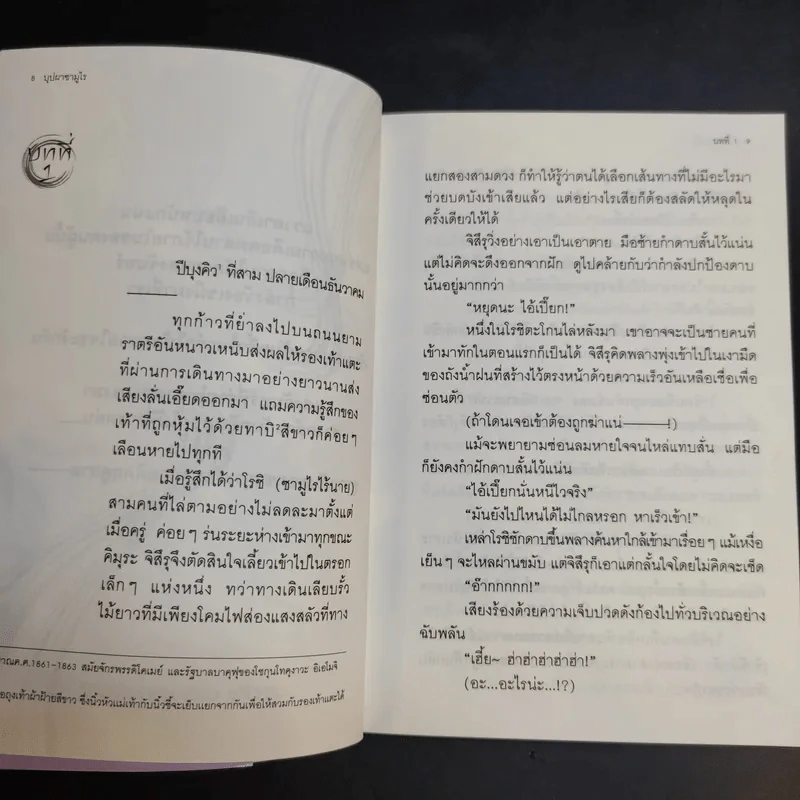 8 บุปผาซามูไร
บทที่
1
ปีบุงคิว¹ ที่สาม ปลายเดือนธันวาคม
ทุกก้าวที่ย่ำลงไปบนถนนยาม
ราตรีอันหนาวเหน็บส่งผลให้รองเท้าแตะ
ที่ผ่านการเดินทางมาอย่างยาวนานส่ง
เสียงลั่นเอี๊ยดออกมา แถมความรู้สึกของ
เท้าที่ถูกหุ้มไว้ด้วยทาบิ²สีขาวก็ค่อยๆ
เลือนหายไปทุกที
เมื่อรู้สึกได้ว่าโรชิ (ซามูไรไร้นาย)
สามคนที่ไล่ตามอย่างไม่ลดละมาตั้งแต่
เมื่อครู่ ค่อยๆ ร่นระยะห่างเข้ามาทุกขณะ
คิมุระ จิสึรุจึงตัดสินใจเลี้ยวเข้าไปในตรอก
เล็กๆ แห่งหนึ่ง ทว่าทางเดินเลียบรั้ว
ไม้ยาวที่มีเพียงโคมไฟส่องแสงสลัวที่ทาง
าณค.ศ.1861-1863 สมัยจักรพรรดิโคเมย์ และรัฐบาลบาคุฟุของโชกุนโทคุงาวะ อิเอโมจิ
อถุงเท้าผ้าฝ้ายสีขาว ซึ่งนิ้วหัวแม่เท้ากับนิ้วชี้จะเย็บแยกจากกันเพื่อให้สวมกับรองเท้าแตะได้
บทที่ 1 9
แยกสองสามดวง ก็ทำให้รู้ว่าตนได้เลือกเส้นทางที่ไม่มีอะไรมา
ช่วยบดบังเข้าเสียแล้ว แต่อย่างไรเสียก็ต้องสลัดให้หลุดใน
ครั้งเดียวให้ได้
จิสึรุวิ่งอย่างเอาเป็นเอาตาย มือซ้ายกำดาบสั้นไว้แน่น
แต่ไม่คิดจะดึงออกจากฝัก ดูไปคล้ายกับว่ากำลังปกป้องดาบ
นั้นอยู่มากกว่า
“หยุดนะ ไอ้เปี๊ยก!”
หนึ่งในโรชิตะโกนไล่หลังมา เขาอาจจะเป็นชายคนที่
เข้ามาทักในตอนแรกก็เป็นได้ จิสึรุคิดพลางพุ่งเข้าไปในเงามืด
ของถังน้ำฝนที่สร้างไว้ตรงหน้าด้วยความเร็วอันเหลือเชื่อเพื่อ
ซ่อนตัว
(ถ้าโดนเจอเข้าต้องถูกฆ่าแน่———!)
แม้จะพยายามซ่อนลมหายใจจนไหล่แทบสั่น แต่มือ
ก็ยังคงกำฝักดาบสั้นไว้แน่น
“ไอ้เปี๊ยกนั่นหนีไวจริง”
“มันยังไปไหนได้ไม่ไกลหรอก หาเร็วเข้า!”
เหล่าโรชิชักดาบขึ้นพลางค้นหาใกล้เข้ามาเรื่อยๆ แม้เหงื่อ
เย็นๆ จะไหลผ่านขมับ แต่จิสึรุก็เอาแต่กลั้นใจโดยไม่คิดจะเช็ด
“อ๊ากกกกก!”
เสียงร้องด้วยความเจ็บปวดดังก้องไปทั่วบริเวณอย่าง
ฉับพลัน
“เฮี้ย~ ฮ่าฮ่าฮ่าฮ่าฮ่า!”
(อะ...อะไรน่ะ...!?)